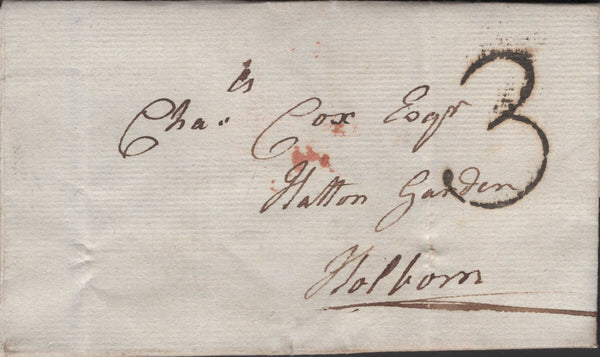 Cha.s Cox Esqr
3
Hatton Garden
Holborn